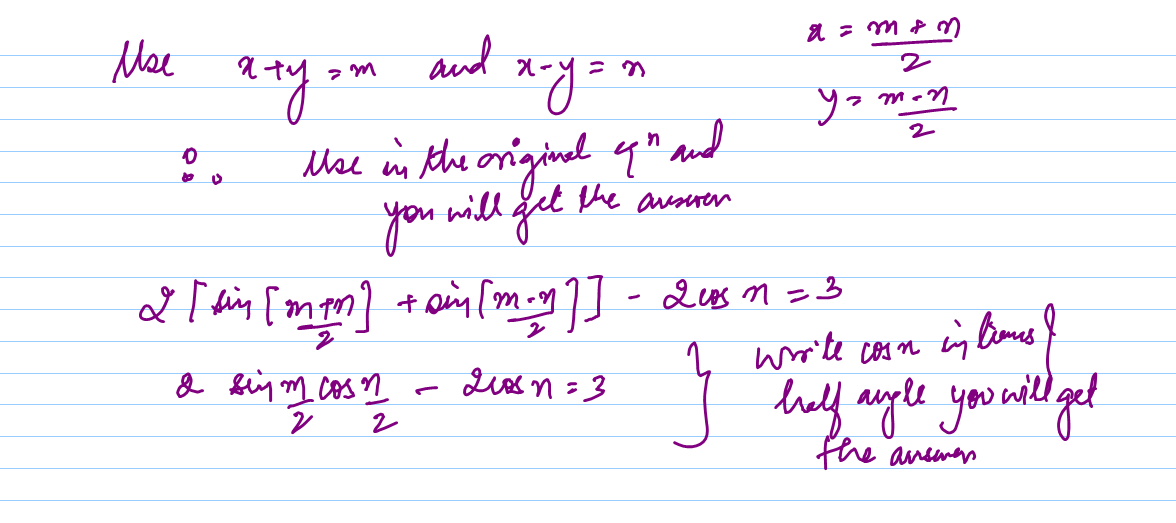 Use x+y = m and x-y = n
x = m+n/2
y = m-n/2
∴ Use in the original eqn and
you will get the answer
2 [ sin [m+n/2] + sin [m-n/2] ] - 2cos n = 3
2 sin m/2 cos n/2 - 2cos n = 3
write cos n in terms
half angle you will get
the answer